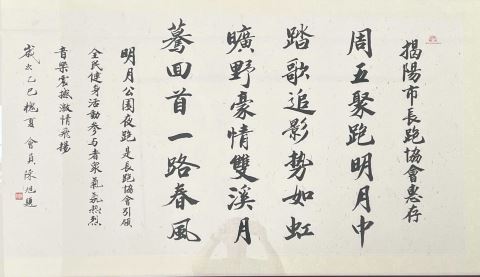 揭陽市長跑協會惠存
周五聚跑明月中
踏歌追影勢如虹
曠野豪情雙溪月
驀回首一路春風
明月公園夜跑是長跑協會引領
全民健身活動参与者眾氣氛熱烈
音樂震撼激情飛揚
歲次乙巳槐夏會員陳旭題